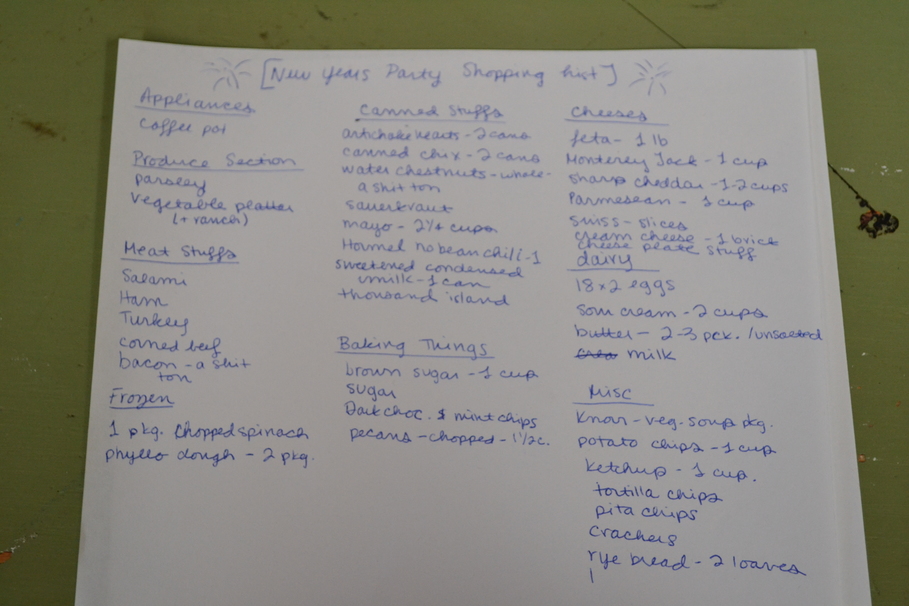 [New Years Party Shopping List]
Appliances
Coffee pot
Produce Section
parsley
vegetable platter
(+ ranch)
Meat Stuffs
Salami
Ham
Turkey
corned beef
bacon - a shit
ton
Frozen
1 pkg. Chopped spinach
phyllo dough - 2 pkg.
Canned Stuffs
artichoke hearts - 2 cans
canned chix - 2 cans
water chestnuts - whole -
a shit ton
sauerkraut
mayo - 2 1/4 cups
Hormel no bean chili - 1
sweetened condensed
milk - 1 can
thousand island
Baking Things
brown sugar - 1 cup
sugar
Dark choc. & mint chips
pecans - chopped - 1 1/2 c.
Cheeses
feta - 1 lb
Monterey Jack - 1 cup
sharp cheddar - 1-2 cups
Parmesean - 1 cup
swiss - slices
cream cheese - 1 brick
cheese plate stuff
dairy
18 x 2 eggs
sour cream - 2 cups
butter - 2-3 pck. /unsalted
milk
Misc
Knorr - veg. soup pkg.
potato chips - 1 cup
ketchup - 1 cup.
tortilla chips
pita chips
crackers
rye bread - 2 loaves